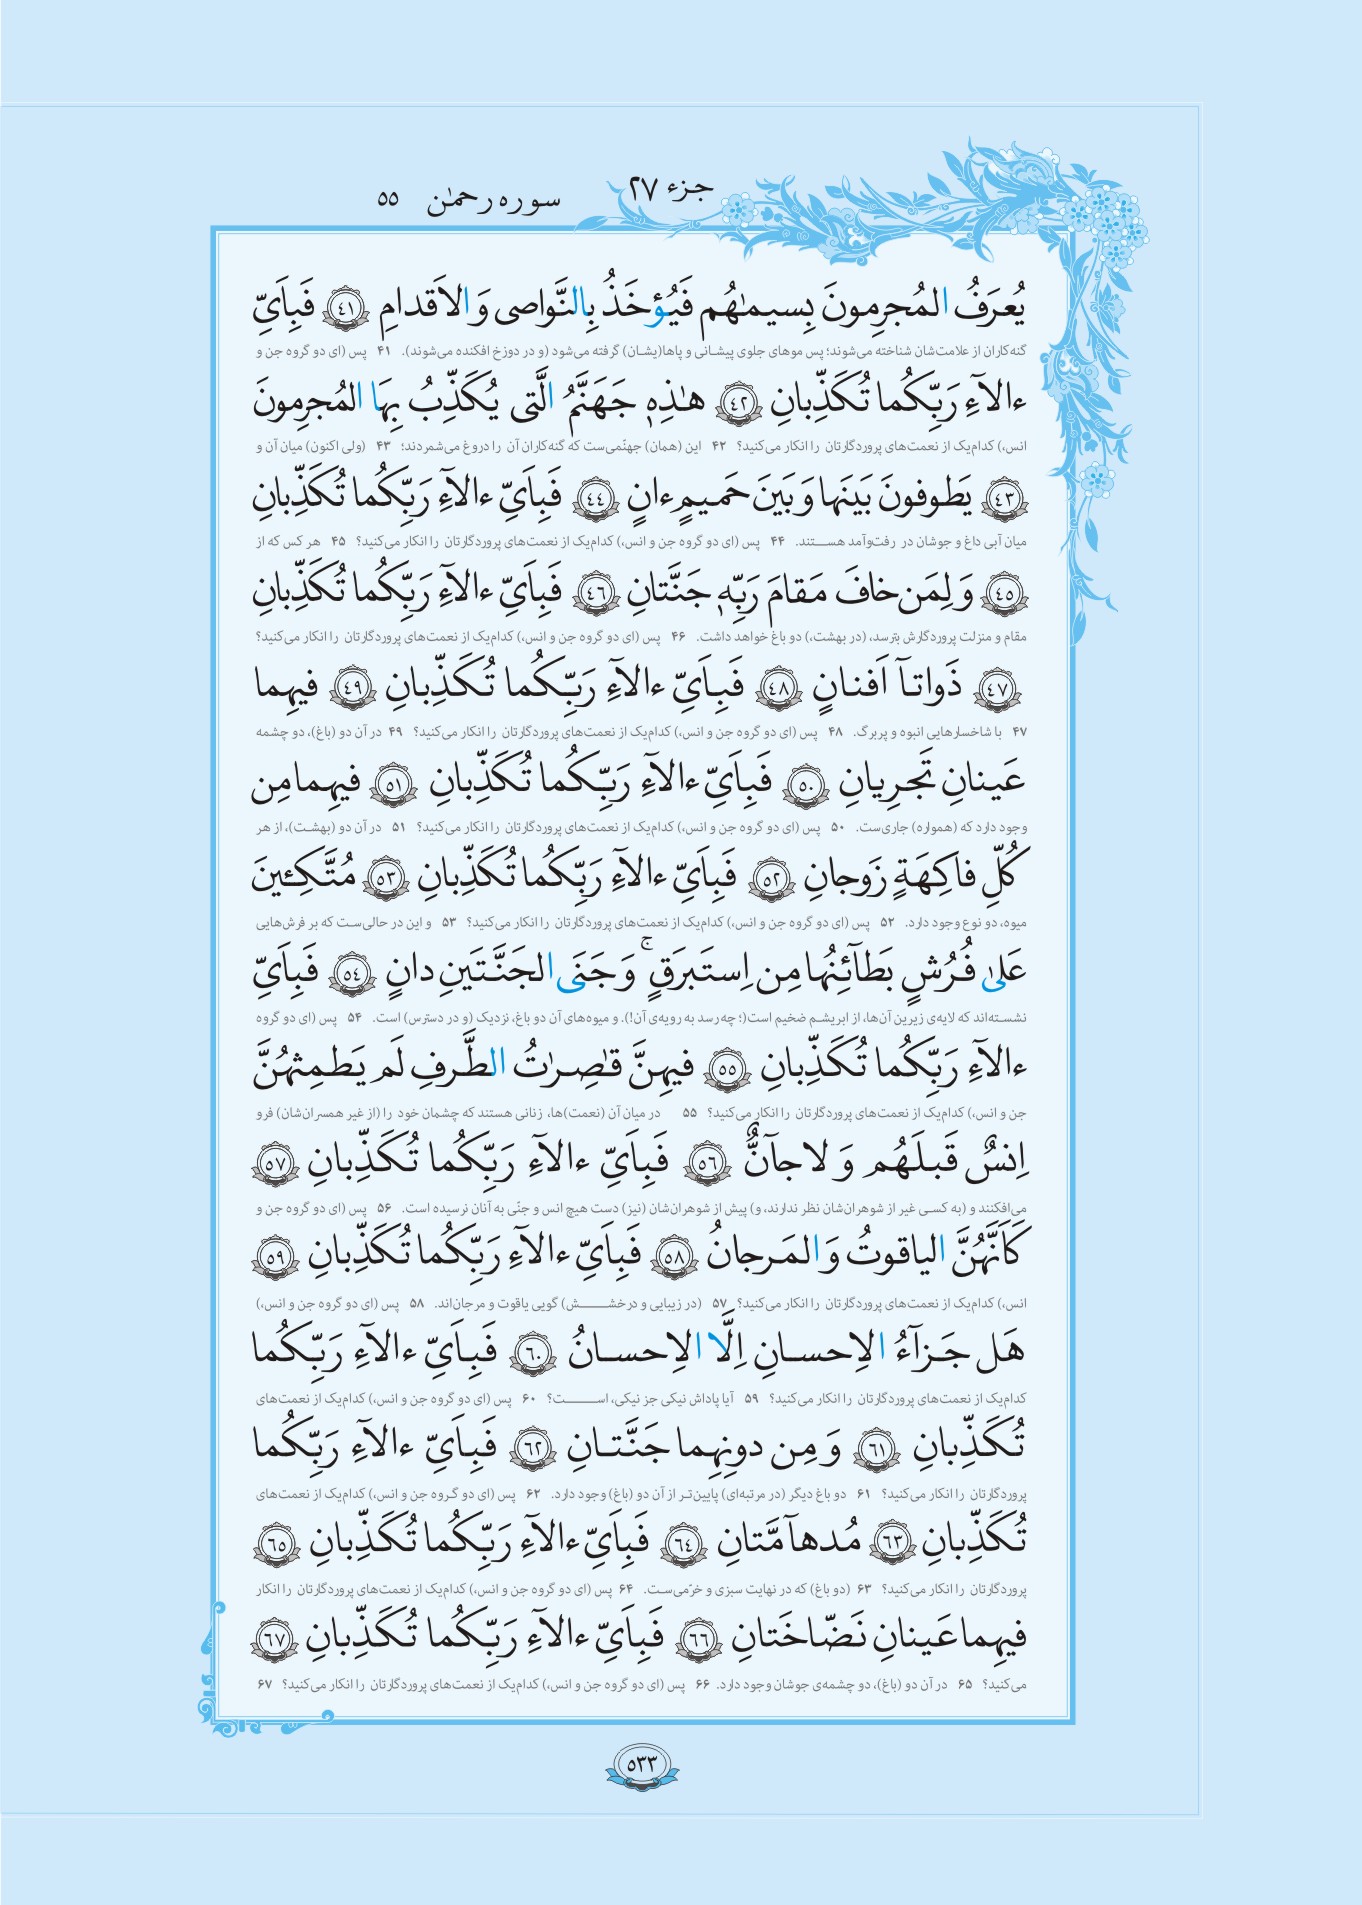 جزء ۲۷
سوره رحمٰن ۵۵
يُعرَفُ المُجرِمونَ بِسيمٰهُم فَيُؤخَذُ بِالنَّواصى وَ الاَقدامِ ٤١ فَبِاَىِّ
گنه‌کاران از علامت‌شان شناخته می‌شوند؛ پس موهای جلوی پیشانی و پاها(یشان) گرفته می‌شود (و در دوزخ افکنده می‌شوند). ۴۱ پس (ای دو گروه جن و
ءالآءِ رَبِّكُما تُكَذِّبانِ ٤٢ هٰذِهٖ جَهَنَّمُ الَّتى يُكَذِّبُ بِهَا المُجرِمونَ
انس،) کدام‌یک از نعمت‌های پروردگارتان را انکار می‌کنید؟ ۴۲ این (همان) جهنّمی‌ست که گنه‌کاران آن را دروغ می‌شمردند؛ ۴۳ (ولی اکنون) میان آن و
٤٣ يَطوفونَ بَينَها وَ بَينَ حَميمٍ ءانٍ ٤٤ فَبِاَىِّ ءالآءِ رَبِّكُما تُكَذِّبانِ
میان آبی داغ و جوشان در رفت‌وآمد هستند. ۴۴ پس (ای دو گروه جن و انس،) کدام‌یک از نعمت‌های پروردگارتان را انکار می‌کنید؟ ۴۵ هر کس که از
٤٥ وَ لِمَن خافَ مَقامَ رَبِّهٖ جَنَّتانِ ٤٦ فَبِاَىِّ ءالآءِ رَبِّكُما تُكَذِّبانِ
مقام و منزلت پروردگارش بترسد، (در بهشت،) دو باغ خواهد داشت. ۴۶ پس (ای دو گروه جن و انس،) کدام‌یک از نعمت‌های پروردگارتان را انکار می‌کنید؟
٤٧ ذَواتآ اَفنانٍ ٤٨ فَبِاَىِّ ءالآءِ رَبِّكُما تُكَذِّبانِ ٤٩ فيهِما
۴۷ با شاخسارهایی انبوه و پربرگ. ۴۸ پس (ای دو گروه جن و انس،) کدام‌یک از نعمت‌های پروردگارتان را انکار می‌کنید؟ ۴۹ در آن دو (باغ)، دو چشمه
عَينانِ تَجرِيانِ ٥٠ فَبِاَىِّ ءالآءِ رَبِّكُما تُكَذِّبانِ ٥١ فيهِما مِن
وجود دارد که (همواره) جاری‌ست. ۵۰ پس (ای دو گروه جن و انس،) کدام‌یک از نعمت‌های پروردگارتان را انکار می‌کنید؟ ۵۱ در آن دو (بهشت)، از هر
كُلِّ فاكِهَةٍ زَوجانِ ٥٢ فَبِاَىِّ ءالآءِ رَبِّكُما تُكَذِّبانِ ٥٣ مُتَّكِـئينَ
میوه، دو نوع وجود دارد. ۵۲ پس (ای دو گروه جن و انس،) کدام‌یک از نعمت‌های پروردگارتان را انکار می‌کنید؟ ۵۳ و این در حالی‌ست که بر فرش‌هایی
عَلىٰ فُرُشٍ بَطآئِنُها مِن اِستَبرَقٍۚ وَ جَنَى الجَنَّتَينِ دانٍ ٥٤ فَبِاَىِّ
نشسته‌اند که لایه‌ی زیرین آن‌ها، از ابریشم ضخیم است(؛ چه رسد به رویه‌ی آن!). و میوه‌های آن دو باغ، نزدیک (و در دسترس) است. ۵۴ پس (ای دو گروه
ءالآءِ رَبِّكُما تُكَذِّبانِ ٥٥ فيهِنَّ قٰصِرٰتُ الطَّرفِ لَم يَطمِثهُنَّ
جن و انس،) کدام‌یک از نعمت‌های پروردگارتان را انکار می‌کنید؟ ۵۵ در میان آن (نعمت)ها، زنانی هستند که چشمان خود را (از غیر همسران‌شان) فرو
اِنسٌ قَبلَهُم وَ لا جآنٌّ ٥٦ فَبِاَىِّ ءالآءِ رَبِّكُما تُكَذِّبانِ ٥٧
می‌افکنند و (به کسی غیر از شوهران‌شان نظر ندارند، و) پیش از شوهران‌شان (نیز) دست هیچ انس و جنّی به آنان نرسیده است. ۵۶ پس (ای دو گروه جن و
كَاَنَّهُنَّ الياقوتُ وَ المَرجانُ ٥٨ فَبِاَىِّ ءالآءِ رَبِّكُما تُكَذِّبانِ ٥٩
انس،) کدام‌یک از نعمت‌های پروردگارتان را انکار می‌کنید؟ ۵۷ (در زیبایی و درخشش) گویی یاقوت و مرجان‌اند. ۵۸ پس (ای دو گروه جن و انس،)
هَل جَزآءُ الاِحسانِ اِلَّا الاِحسانُ ٦٠ فَبِاَىِّ ءالآءِ رَبِّكُما
کدام‌یک از نعمت‌های پروردگارتان را انکار می‌کنید؟ ۵۹ آیا پاداش نیکی جز نیکی، است؟ ۶۰ پس (ای دو گروه جن و انس،) کدام‌یک از نعمت‌های
تُكَذِّبانِ ٦١ وَ مِن دونِهِما جَنَّتانِ ٦٢ فَبِاَىِّ ءالآءِ رَبِّكُما
پروردگارتان را انکار می‌کنید؟ ۶۱ دو باغ دیگر (در مرتبه‌ای) پایین‌تر از آن دو (باغ) وجود دارد. ۶۲ پس (ای دو گروه جن و انس،) کدام‌یک از نعمت‌های
تُكَذِّبانِ ٦٣ مُدهآمَّتانِ ٦٤ فَبِاَىِّ ءالآءِ رَبِّكُما تُكَذِّبانِ ٦٥
پروردگارتان را انکار می‌کنید؟ ۶۳ (دو باغ) که در نهایت سبزی و خرّمی‌ست. ۶۴ پس (ای دو گروه جن و انس،) کدام‌یک از نعمت‌های پروردگارتان را انکار
فيهِما عَينانِ نَضّاخَتانِ ٦٦ فَبِاَىِّ ءالآءِ رَبِّكُما تُكَذِّبانِ ٦٧
می‌کنید؟ ۶۵ در آن دو (باغ)، دو چشمه‌ی جوشان وجود دارد. ۶۶ پس (ای دو گروه جن و انس،) کدام‌یک از نعمت‌های پروردگارتان را انکار می‌کنید؟ ۶۷
۵۳۳